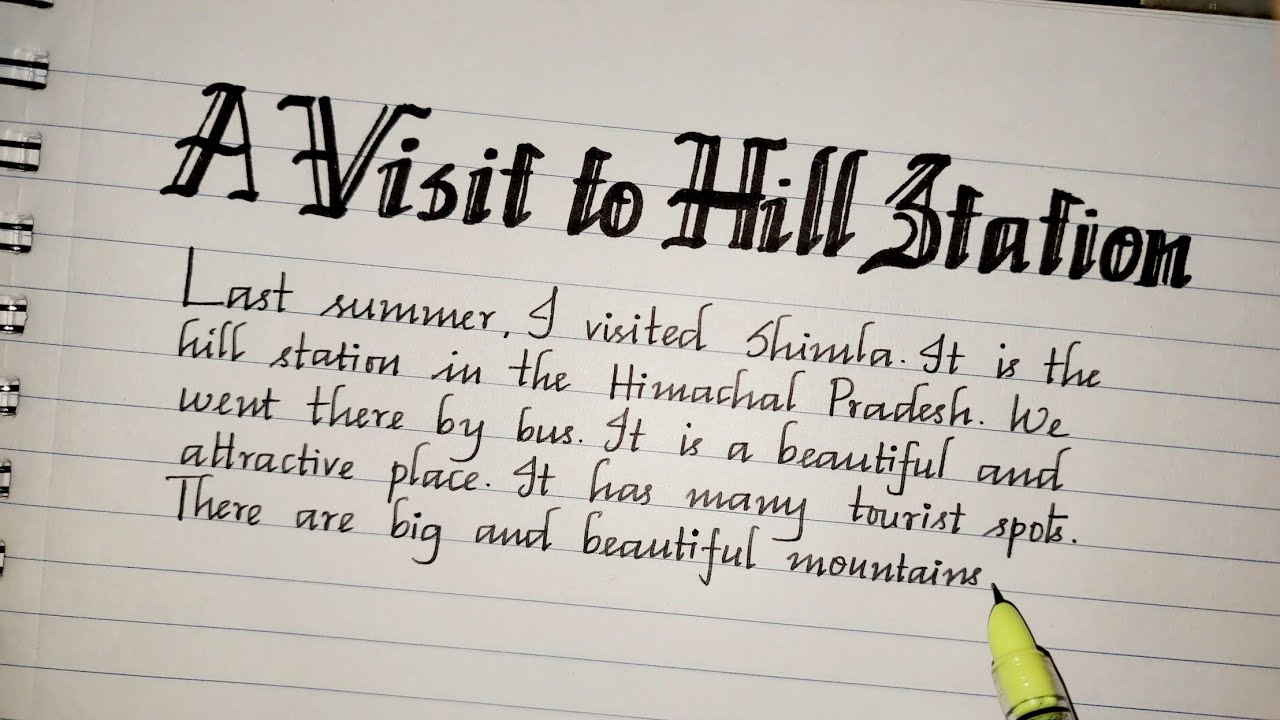 A Visit to Hill Station
Last summer, I visited Shimla. It is the
hill station in the Himachal Pradesh. We
went there by bus. It is a beautiful and
attractive place. It has many tourist spots.
There are big and beautiful mountains